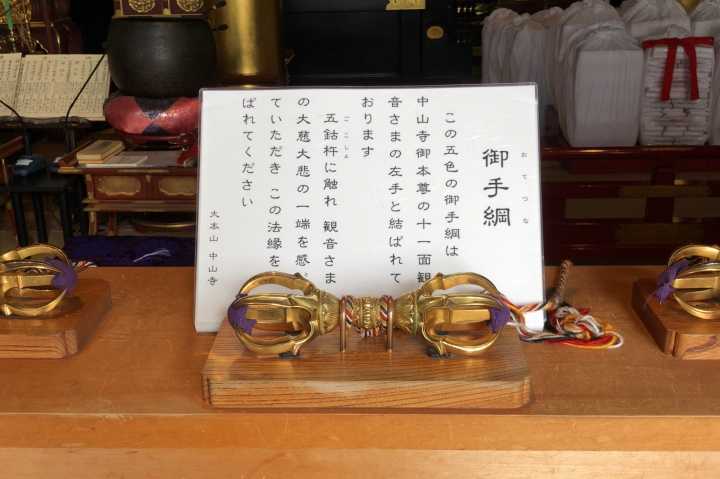 おてつな
御手綱
この五色の御手綱は
中山寺御本尊の十一面観
音さまの左手と結ばれて
おります
ごこしょ
五鈷杵に触れ 観音さま
の大慈大悲の一端を感
ていただき この法縁を
ばれてください
大本山 中山寺